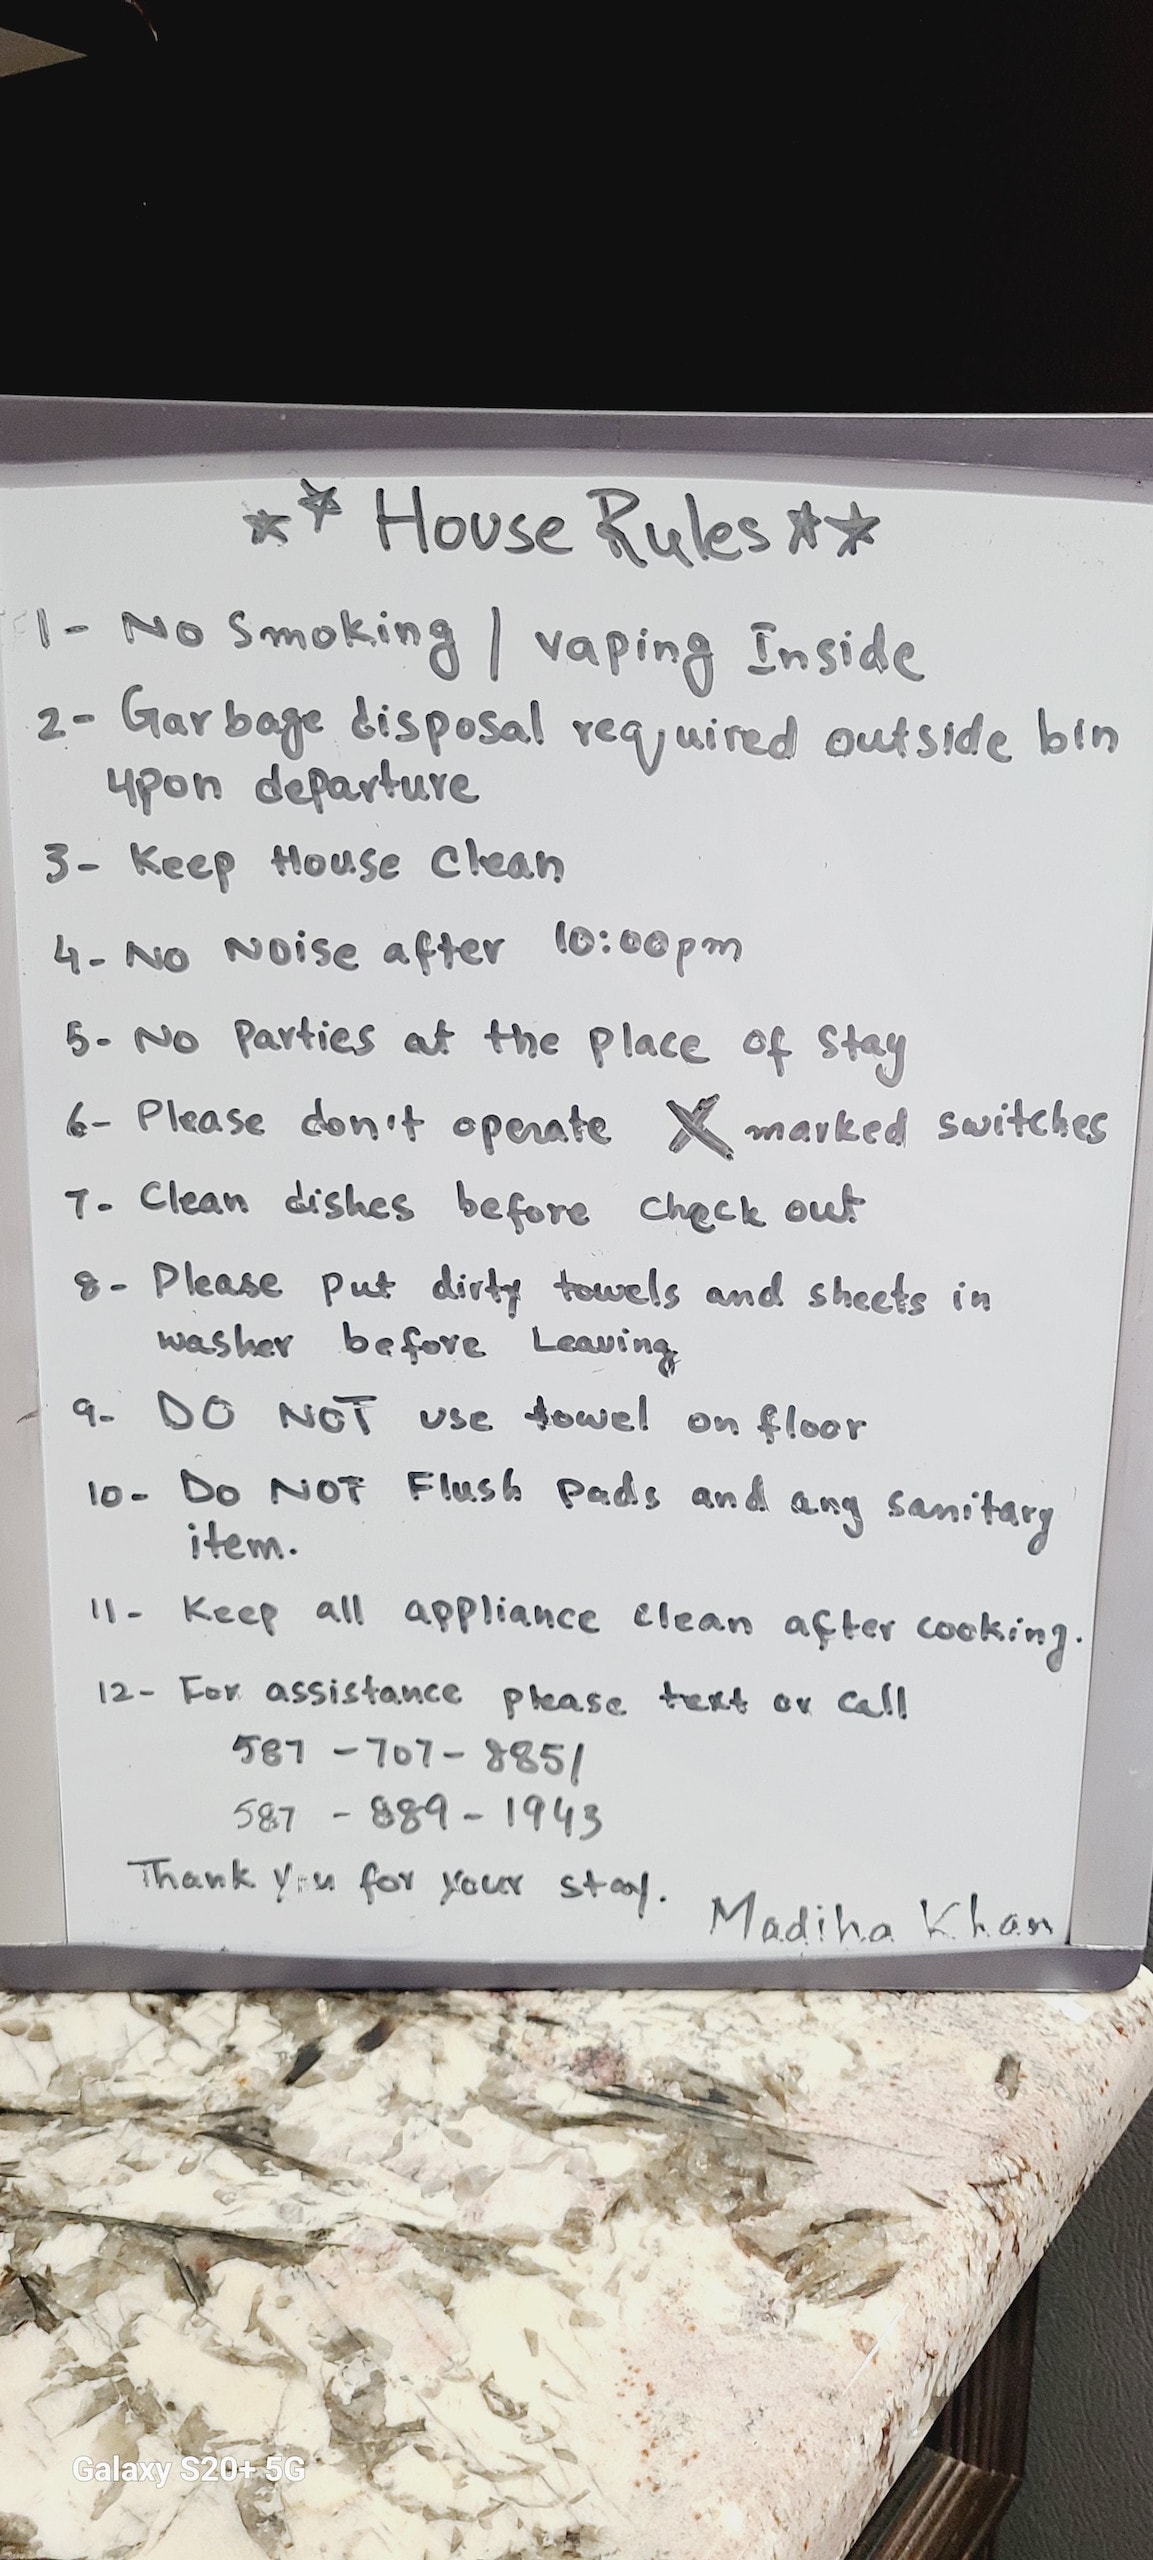 ** House Rules **
1- No Smoking / vaping Inside
2- Garbage disposal required outside bin
upon departure
3- Keep House Clean
4- No Noise after 10:00pm
5- No Parties at the place of stay
6- Please don't operate X marked switches
7- Clean dishes before check out
8- Please put dirty towels and sheets in
washer before Leaving
9- DO NOT use towel on floor
10- Do NOT Flush pads and any sanitary
item.
11- Keep all appliance clean after cooking.
12- For assistance please text or call
587-707-8851
587-889-1943
Thank you for your stay.
Madiha Khan
Galaxy S20+ 5G